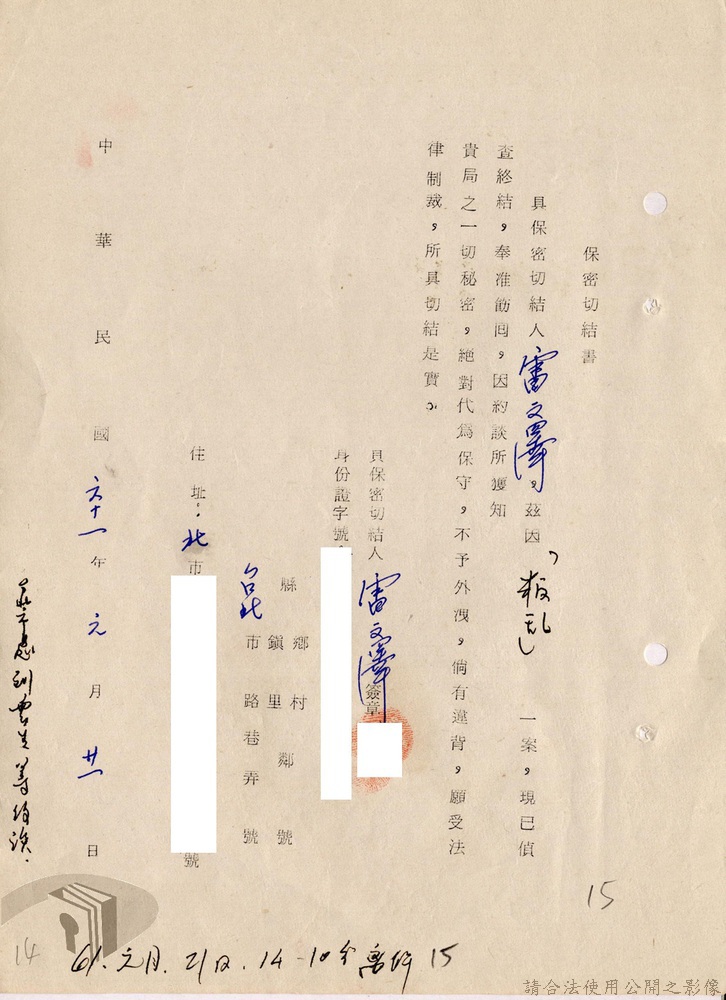 保密切結書
具保密切結人雷文澤，茲因「叛乱」一案，現已偵
查終結，奉准飭回，因約談所獲知
貴局之一切秘密，絕對代為保守，不予外洩，倘有違背，願受法
律制裁，所具切結是實。
具保密切結人 雷文澤 簽章
身份證字號：
縣 鄉 村 鄰 號
台北市 鎮 里 路 巷 弄 號
住址：北市 號
中華民國六十一年元月廿一日
61.元月.21日.14-10分離所
15
15
14
請合法使用公開之影像